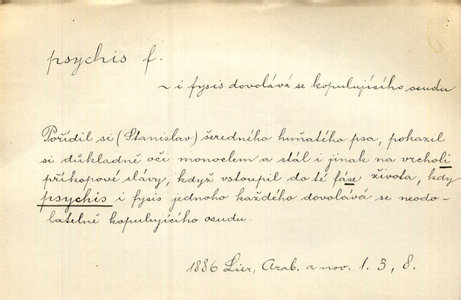 psychis f.
~ i fysis dovolává se kopulujícího osudu
Pořídil si (Stanislav) šeredného huňatého psa, pokazil
si důkladně oči monoclem a stál i jinak na vrcholi
příkopové slávy, když vstoupil do té fáse života, kdy
psychis i fysis jednoho každého dovolává se neodo-
latelně kopulujícího osudu.
1886 Lier, Arab. a nov. 1. 3, 8.